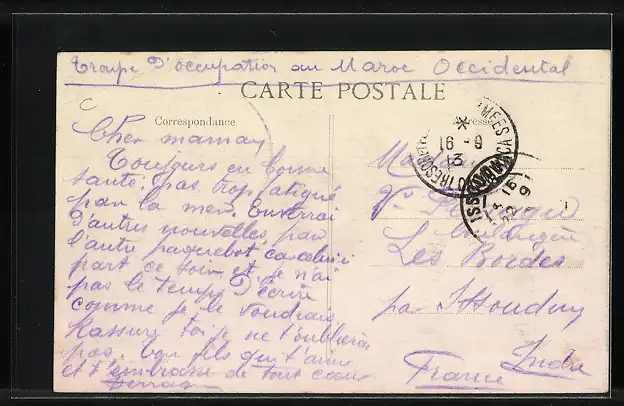 Troupe D'occupation au Maroc Occidental
CARTE POSTALE
Correspondance
Adresse
Cher maman
Toujours en bonne
santé, pas trop fatigué
par la mer. Enverrai
d'autres nouvelles par
l'autre paquebot
part ce soir et je n'ai
pas le temps D'écrire
comme je le voudrais
Rassure toi je ne t'oublierai
pas. Ton fils qui t'aime
et t'embrasse de tout cœur
Madame
Vve
Boulangère
Les Bordes
par Issoudun
Indre
France
TRESOR ARMEES CASABLANCA
16 - 9
13
ISSOUDUN